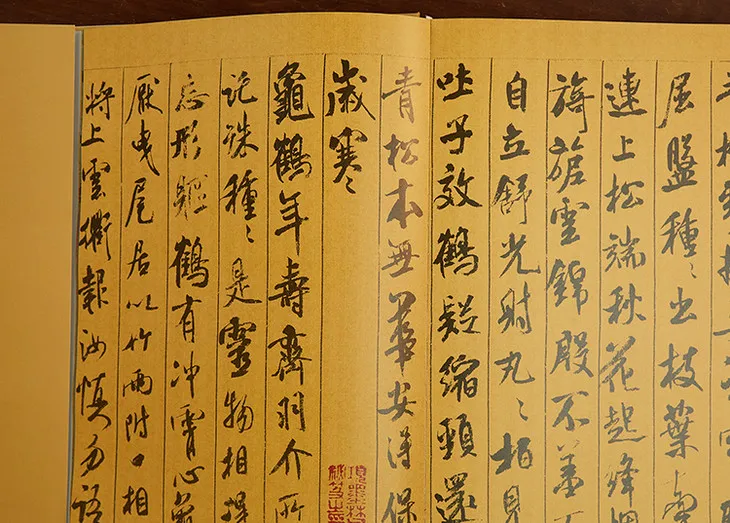 屈盤種〻出枝葉
連上松端秋花起絳
旖旎雲錦殷不羞不
自立舒光射丸〻柏見
吐子效鶴疑縮頸還
青松本無華安得保
歲寒〻
龜鶴年壽齊羽介所
託殊種〻是靈物相得
忘形軀鶴有沖霄心龜
厭曳尾居以竹兩附口相
將上雲衢報汝慎勿語